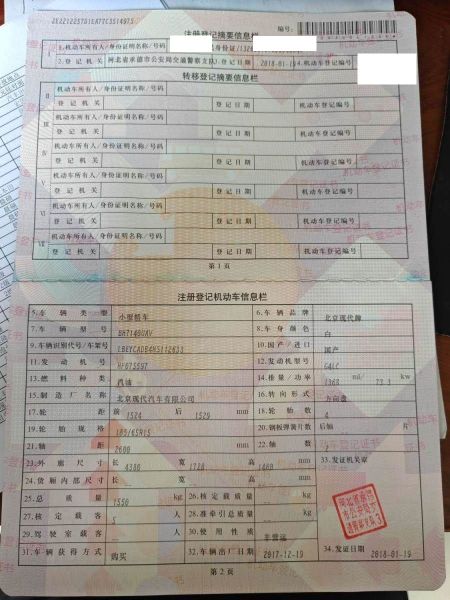 注册登记摘要信息栏
编号：
I 1.机动车所有人/身份证明名称/号码
2.登记机关 河北省承德市公安局交通警察支队 3.登记日期 2018-01-19 4.机动车登记编号
转移登记摘要信息栏
II 机动车所有人/身份证明名称/号码
登记机关 登记日期 机动车登记编号
III 机动车所有人/身份证明名称/号码
登记机关 登记日期 机动车登记编号
IV 机动车所有人/身份证明名称/号码
登记机关 登记日期 机动车登记编号
V 机动车所有人/身份证明名称/号码
登记机关 登记日期 机动车登记编号
VI 机动车所有人/身份证明名称/号码
登记机关 登记日期 机动车登记编号
VII 机动车所有人/身份证明名称/号码
登记机关 登记日期 机动车登记编号
第1页
注册登记机动车信息栏
5.车辆类型 小型轿车 6.车辆品牌 北京现代牌
7.车辆型号 8.车身颜色 白
9.车辆识别代号/车架号 10.国产/进口 国产
11.发动机号 12.发动机型号 G4LC
13.燃料种类 汽油 14.排量/功率 1368 ml/ 73.3 kw
15.制造厂名称 北京现代汽车有限公司 16.转向形式 方向盘
17.轮距 前 1524 后 1529 mm 18.轮胎数 4
19.轮胎规格 185/65R15 20.钢板弹簧片数 后轴 片
21.轴距 2600 mm 22.轴数
23.外廓尺寸 长 4380 宽 1728 高 1460 mm 33.发证机关章
24.货厢内部尺寸 长 宽 高 mm
25.总质量 1550 kg 26.核定载质量 kg
27.核定载客 5 人 28.准牵引总质量 kg
29.驾驶室载客 人 30.使用性质 非营运
31.车辆获得方式 购买 32.车辆出厂日期 2017-12-19 34.发证日期 2018-01-19
第2页